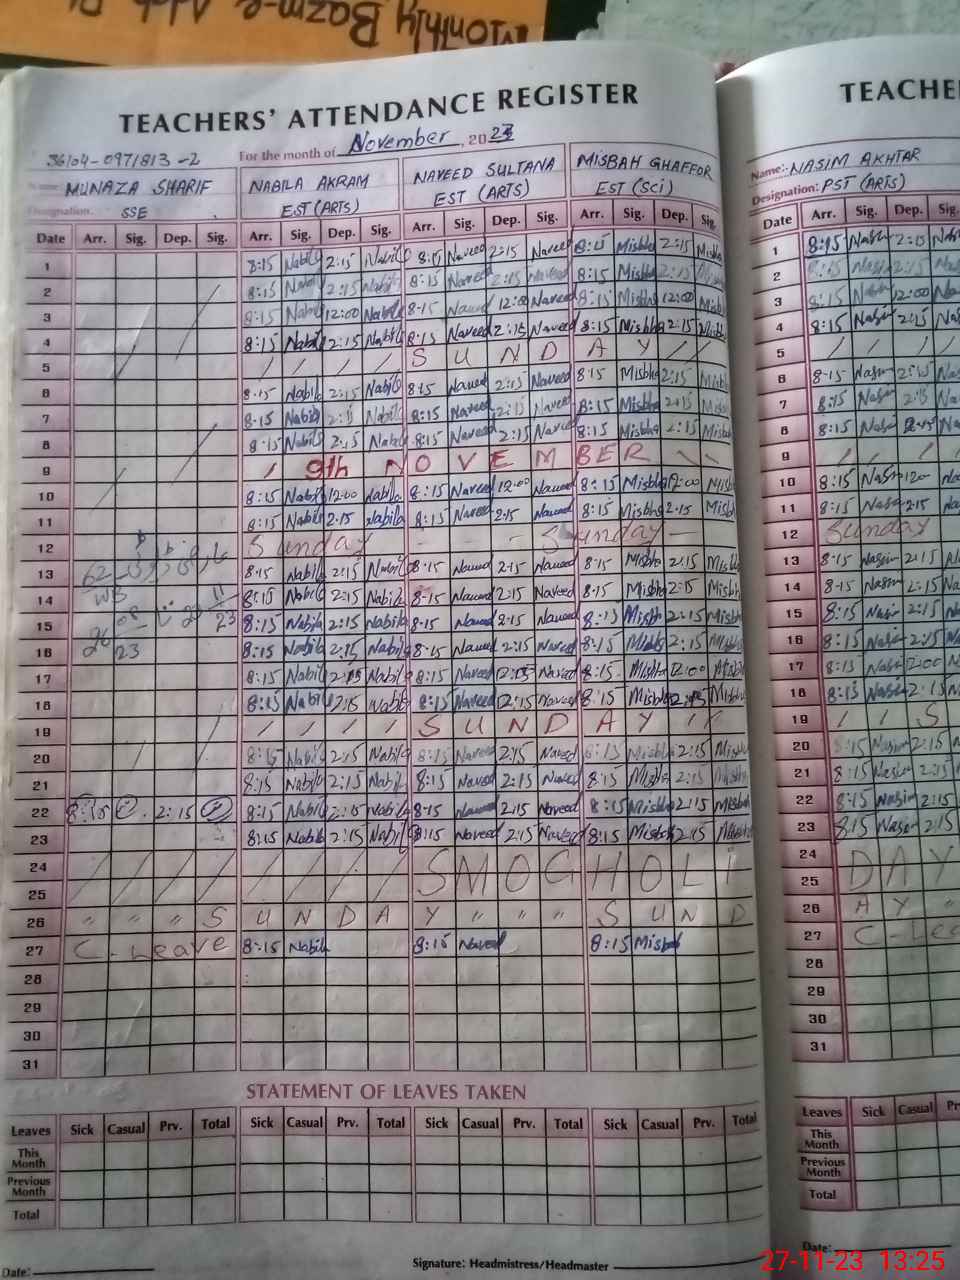 Monthly Bazm-e Adab
TEACHERS' ATTENDANCE REGISTER
For the month of November, 2023
36104-0971813-2
Name: MUNAZA SHARIF NABILA AKRAM NAVEED SULTANA MISBAH GHAFFOR
Designation. SSE EST (ARTS) EST (ARTS) EST (SCi)
Date Arr. Sig. Dep. Sig. Arr. Sig. Dep. Sig. Arr. Sig. Dep. Sig. Arr. Sig. Dep. Sig.
1 8:15 Nabila 2:15 Nabila 8:15 Naveed 2:15 Naveed 8:15 Misbah 2:15 Misbah
2 8:15 Nabila 2:15 Nabila 8:15 Naveed 2:15 Naveed 8:15 Misbah 2:15 Misbah
3 8:15 Nabila 12:00 Nabila 8-15 Naveed 12:00 Naveed 8:15 Misbah 12:00 Misbah
4 8:15 Nabila 2:15 Nabila 8:15 Naveed 2:15 Naveed 8:15 Misbah 2:15 Misbah
5 / / / / S U N D A Y / /
6 8-15 Nabila 2:15 Nabila 8:15 Naveed 2:15 Naveed 8:15 Misbah 2:15 Misbah
7 8-15 Nabila 2:15 Nabila 8:15 Naveed 2:15 Naveed 8:15 Misbah 2:15 Misbah
8 8:15 Nabila 2:15 Nabila 8:15 Naveed 2:15 Naveed 8:15 Misbah 2:15 Misbah
9 / 9th N O V E M B E R \ \
10 8:15 Nabila 12:00 Nabila 8:15 Naveed 12:00 Naveed 8:15 Misbah 12:00 Misbah
11 8:15 Nabila 2:15 Nabila 8:15 Naveed 2:15 Naveed 8:15 Misbah 2:15 Misbah
12 Sunday - - - Sunday - - -
13 8:15 Nabila 2:15 Nabila 8-15 Naveed 2:15 Naveed 8:15 Misbah 2:15 Misbah
14 8:15 Nabila 2:15 Nabila 8-15 Naveed 2:15 Naveed 8:15 Misbah 2:15 Misbah
15 8:15 Nabila 2:15 Nabila 8-15 Naveed 2:15 Naveed 8:15 Misbah 2:15 Misbah
16 8:15 Nabila 2:15 Nabila 8-15 Naveed 2:15 Naveed 8:15 Misbah 2:15 Misbah
17 8:15 Nabila Nabila 8:15 Naveed Naveed 8:15 Misbah 12:00 Misbah
18 8:15 Nabila 2:15 Nabila 8:15 Naveed 2:15 Naveed 8:15 Misbah 2:15 Misbah
19 / / / / S U N D A Y / /
20 8:15 Nabila 2:15 Nabila 8:15 Naveed 2:15 Naveed 8:15 Misbah 2:15 Misbah
21 8:15 Nabila 2:15 Nabila 8:15 Naveed 2:15 Naveed 8:15 Misbah 2:15 Misbah
22 8:15 2:15 8:15 Nabila 2:15 Nabila 8-15 Naveed 2:15 Naveed 8:15 Misbah 2:15 Misbah
23 8:15 Nabila 2:15 Nabila 8:15 Naveed 2:15 Naveed 8:15 Misbah 2:15 Misbah
24
25 S M O G H O L I
26 " " " S U N D A Y " " " S U N D
27 C - Leave 8:15 Nabila 8:15 Naveed 8:15 Misbah
28
29
30
31
STATEMENT OF LEAVES TAKEN
Leaves Sick Casual Prv. Total Sick Casual Prv. Total Sick Casual Prv. Total Sick Casual Prv. Total
This Month
Previous Month
Total
Date: Signature: Headmistress/Headmaster
TEACHE
Name:- NASIM AKHTAR
Designation: PST (ARTS)
Date Arr. Sig. Dep. Sig.
1 8:15 Nasim 2:15
2 8:15 Nasim 2:15
3 8:15 Nasim 12:00
4 8:15 Nasim 2:15
5 / / / /
6 8-15 Nasim 2:15
7 8:15 Nasim 2:15
8 8:15 Nasim 2:15
9 / / / /
10 8:15 Nasim 1200
11 8:15 Nasim 2:15
12 Sunday -
13 8:15 Nasim 2:15
14 8-15 Nasim 2:15
15 8:15 Nasim 2:15
16 8:15 Nasim 2:15
17 8:15 Nasim 12:00
18 8:15 Nasim 2:15
19 / / S
20 8:15 Nasim 2:15
21 8:15 Nasim 2:15
22 8:15 Nasim 2:15
23 8:15 Nasim 2:15
24
25 D A Y
26 A Y "
27 C - Lea
28
29
30
31
Leaves Sick Casual Pr
This Month
Previous Month
Total
Date:
27-11-23 13:25